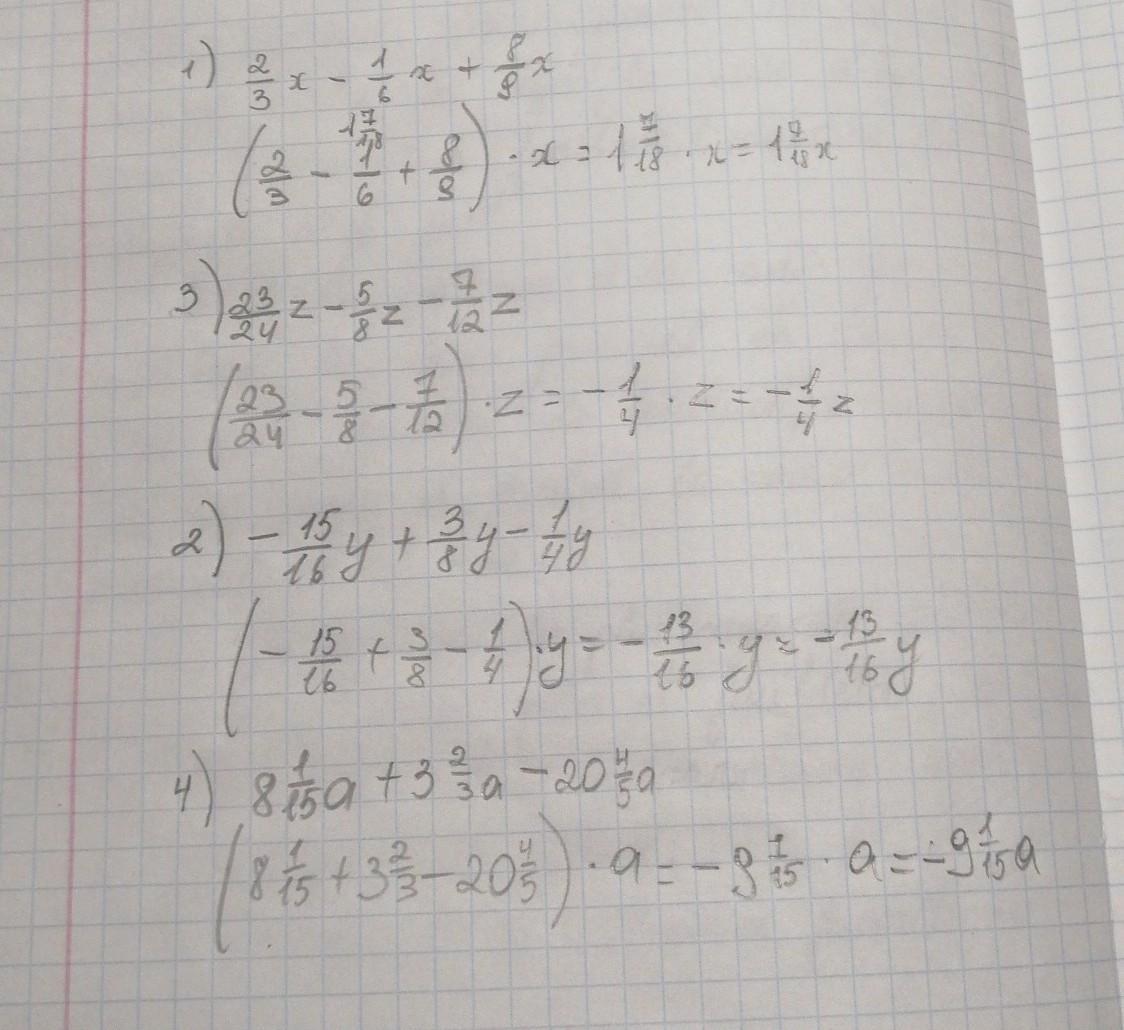 1) 2/3 x - 1/6 x + 8/9 x
1 7/18
(2/3 - 1/6 + 8/9) · x = 1 7/18 · x = 1 7/18 x
3) 23/24 z - 5/8 z - 7/12 z
(23/24 - 5/8 - 7/12) · z = - 1/4 · z = - 1/4 z
2) - 15/16 y + 3/8 y - 1/4 y
(- 15/16 + 3/8 - 1/4) · y = - 13/16 · y = - 13/16 y
4) 8 1/15 a + 3 2/3 a - 20 4/5 a
(8 1/15 + 3 2/3 - 20 4/5) · a = - 9 1/15 · a = - 9 1/15 a